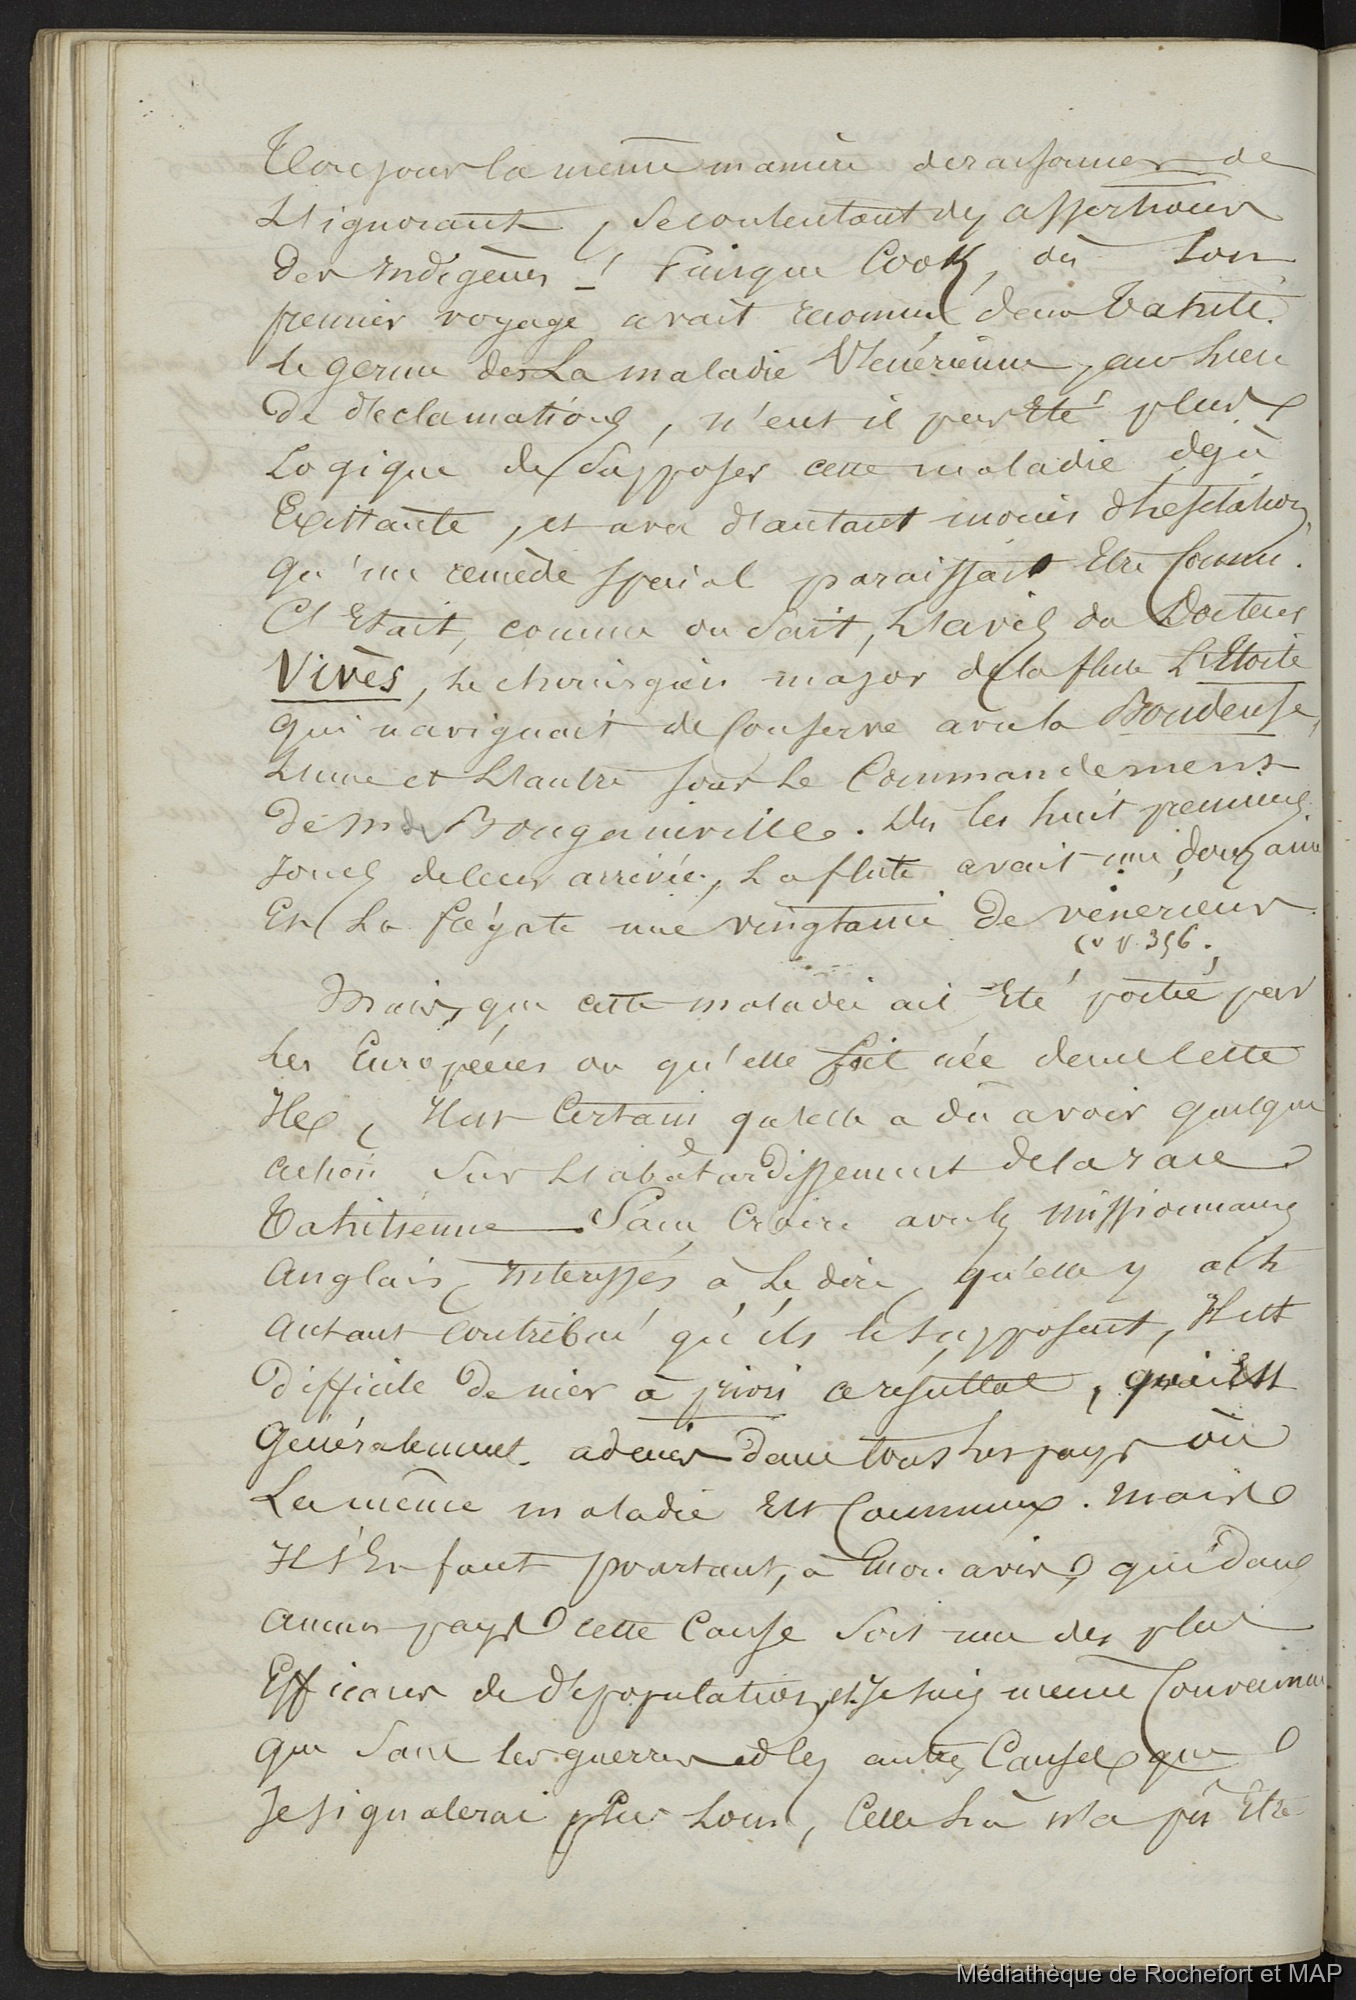 Toujours la même manière de raisonner de
L'ignorant, Se contentant des assertions
Des Indigènes ! Puisque Cook, dès Son
premier voyage avait reconnu dans Tahiti
Le germe de La maladie Vénérienne, au lieu
De déclamations, n'eut il pas Eté plus
Logique de Supposer cette maladie dejà
Existante, et avec d'autant moins d'hésitation,
qu'un remède spécial paraissait Etre Connu.
C'Etait, comme on Sait, L'avis du Docteur
Vivès, Le chirurgien major de la flute L'Etoile
qui naviguait de Conserve avec la Boudeuse,
L'une et L'autre sous Le Commandement
De Mr de Bougainville. Dès les huit premiers
Jours de leur arrivée, La flute avait une douzaine
Et La frégate une vingtaine De vénériens.
(v p. 356.
Mais, que cette maladie ait Eté portée par
Les Européens ou qu'elle soit née dans cette
Ile, Il est Certain qu'elle a dû avoir quelque
action Sur L'abâtardissement de la race
Tahitienne. Sans Croire avec les missionnaires
Anglais, Interessés à Le dire, qu'elle y a
autant contribué qu'ils le supposent, Il est
Difficile De nier à priori ce résultat, qui Est
Généralement admis Dans tous Les pays où
La même maladie Est Commune. Mais
Il s'En faut pourtant, à Mon avis, que dans
aucun pays cette Cause Soit une des plus
Efficaces de dépopulation, et Je suis même Convaincu
que Sans les guerres et les autres Causes que
Je signalerai plus Loin, Celle Là n'a pu Etre
Médiathèque de Rochefort et MAP